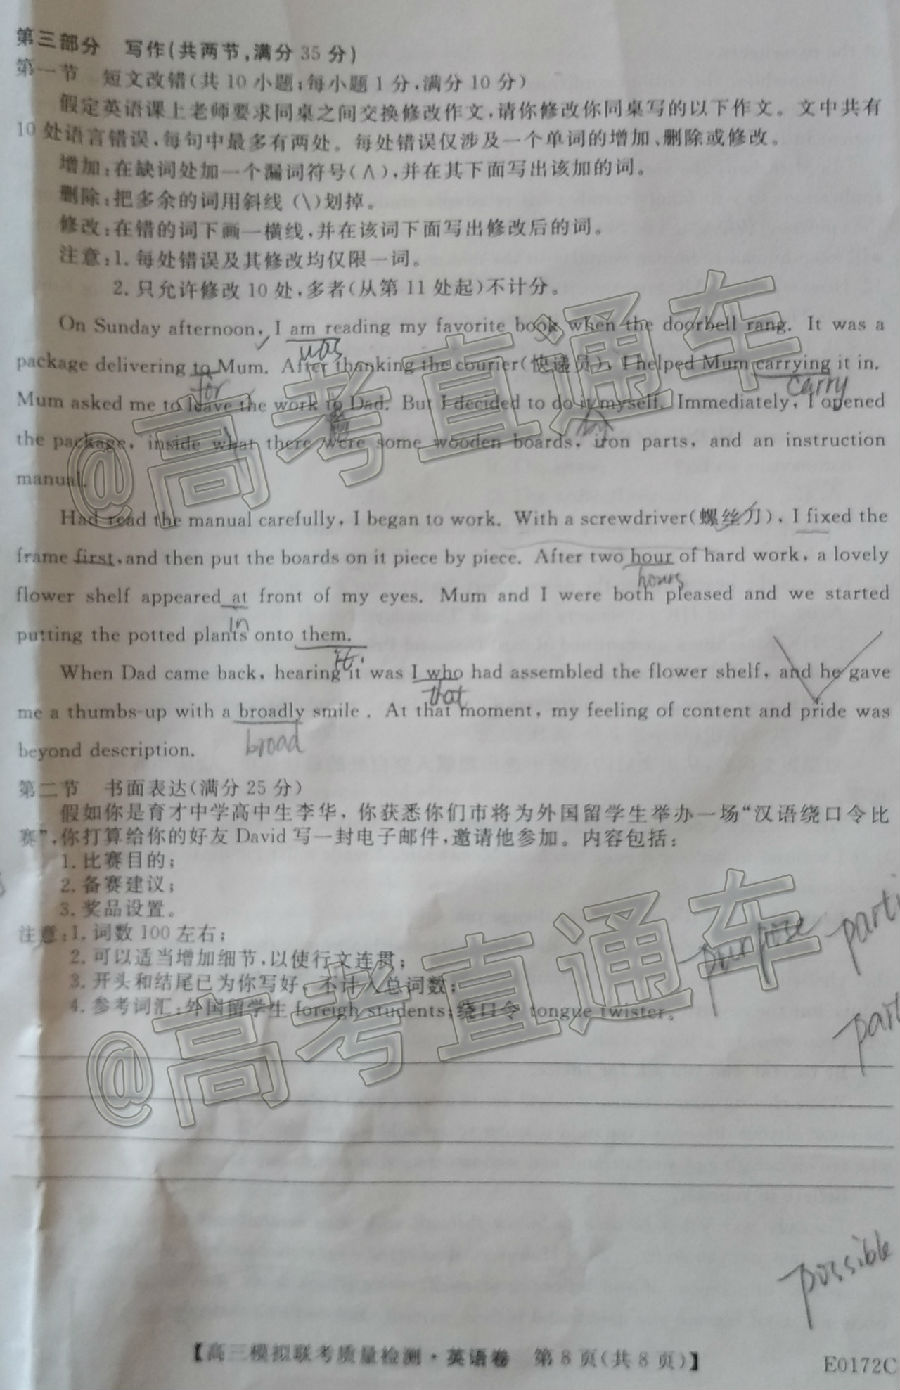 第三部分 写作(共两节,满分 35 分)
第一节 短文改错(共 10 小题;每小题 1 分,满分 10 分)
假定英语课上老师要求同桌之间交换修改作文,请你修改你同桌写的以下作文。文中共有
10 处语言错误,每句中最多有两处。每处错误仅涉及一个单词的增加、删除或修改。
增加:在缺词处加一个漏词符号(∧),并在其下面写出该加的词。
删除:把多余的词用斜线 (\)划掉。
修改:在错的词下画一横线,并在该词下面写出修改后的词。
注意:1. 每处错误及其修改均仅限一词。
2. 只允许修改 10 处,多者(从第 11 处起)不计分。
On Sunday afternoon, I am reading my favorite book when the doorbell rang. It was a
was
package delivering to Mum. After thanking the courier(快递员), I helped Mum carrying it in.
for carry
Mum asked me to leave the work to Dad. But I decided to do it myself. Immediately, I opened
by
the package, inside what there were some wooden boards, iron parts, and an instruction
manual.
Had read the manual carefully, I began to work. With a screwdriver(螺丝刀), I fixed the
frame first, and then put the boards on it piece by piece. After two hour of hard work, a lovely
hours
flower shelf appeared at front of my eyes. Mum and I were both pleased and we started
in
putting the potted plants onto them.
it.
When Dad came back, hearing it was I who had assembled the flower shelf, and he gave
that
me a thumbs-up with a broadly smile. At that moment, my feeling of content and pride was
broad
beyond description.
第二节 书面表达(满分 25 分)
假如你是育才中学高中生李华,你获悉你们市将为外国留学生举办一场“汉语绕口令比
赛”,你打算给你的好友 David 写一封电子邮件,邀请他参加。内容包括:
1. 比赛目的;
2. 备赛建议;
3. 奖品设置。
注意:1. 词数 100 左右;
2. 可以适当增加细节,以使行文连贯;
3. 开头和结尾已为你写好,不计入总词数;
4. 参考词汇:外国留学生 foreigh students;绕口令 tongue twister。
purpose parti
par
possible
@高考直通车
@高考直通车
【高三模拟联考质量检测·英语卷 第 8 页(共 8 页)】
E0172C